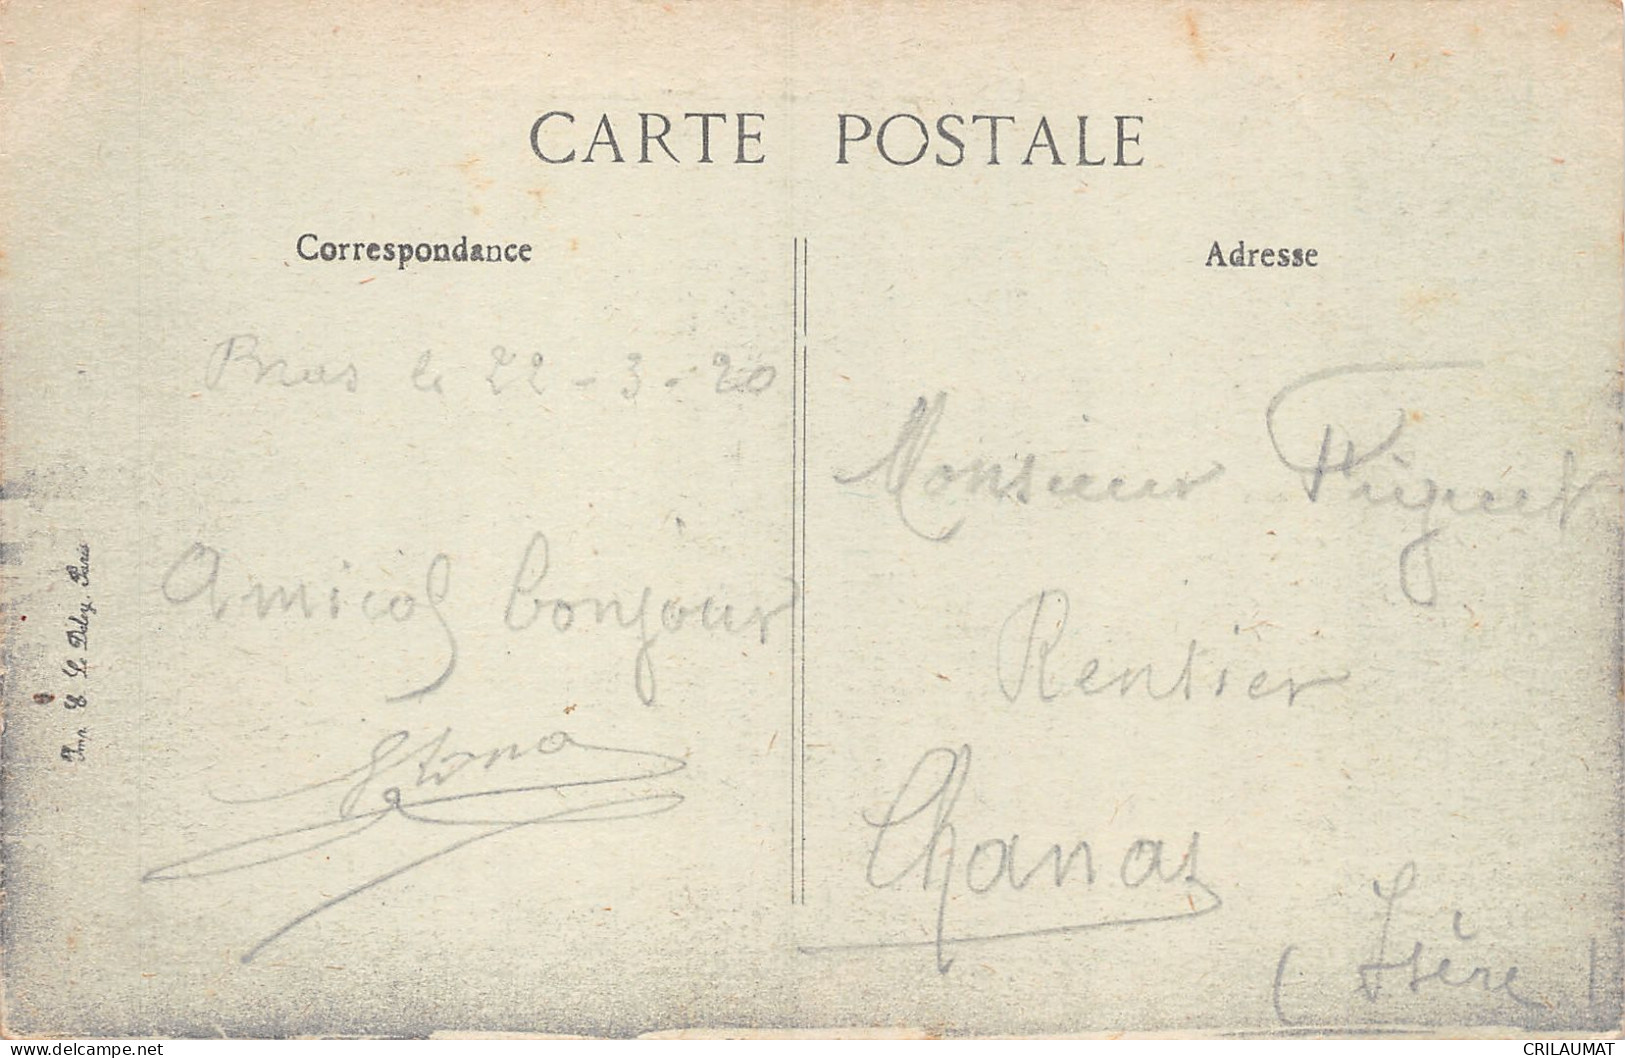 CARTE POSTALE
Correspondance
le 22-3-20
Amical bonjour
Adresse
Monsieur Piguet
Rentier
Chanas
(Isère)
Imp. E. Le Deley, Paris
delcampe.net
CRILAUMAT